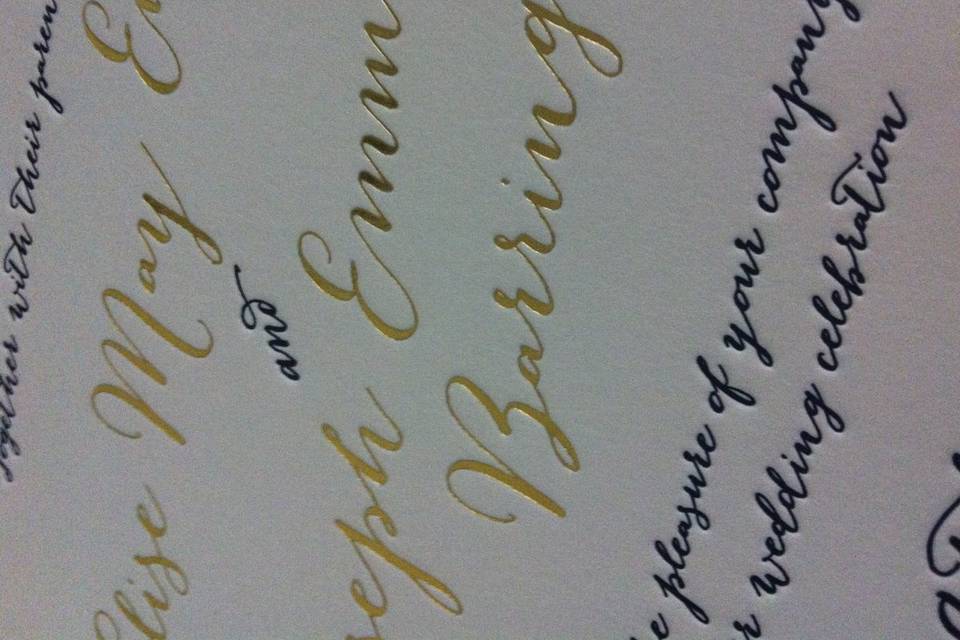 together with their paren
Elise May E
and
seph Emm
Barring
e pleasure of your company
r wedding celebration